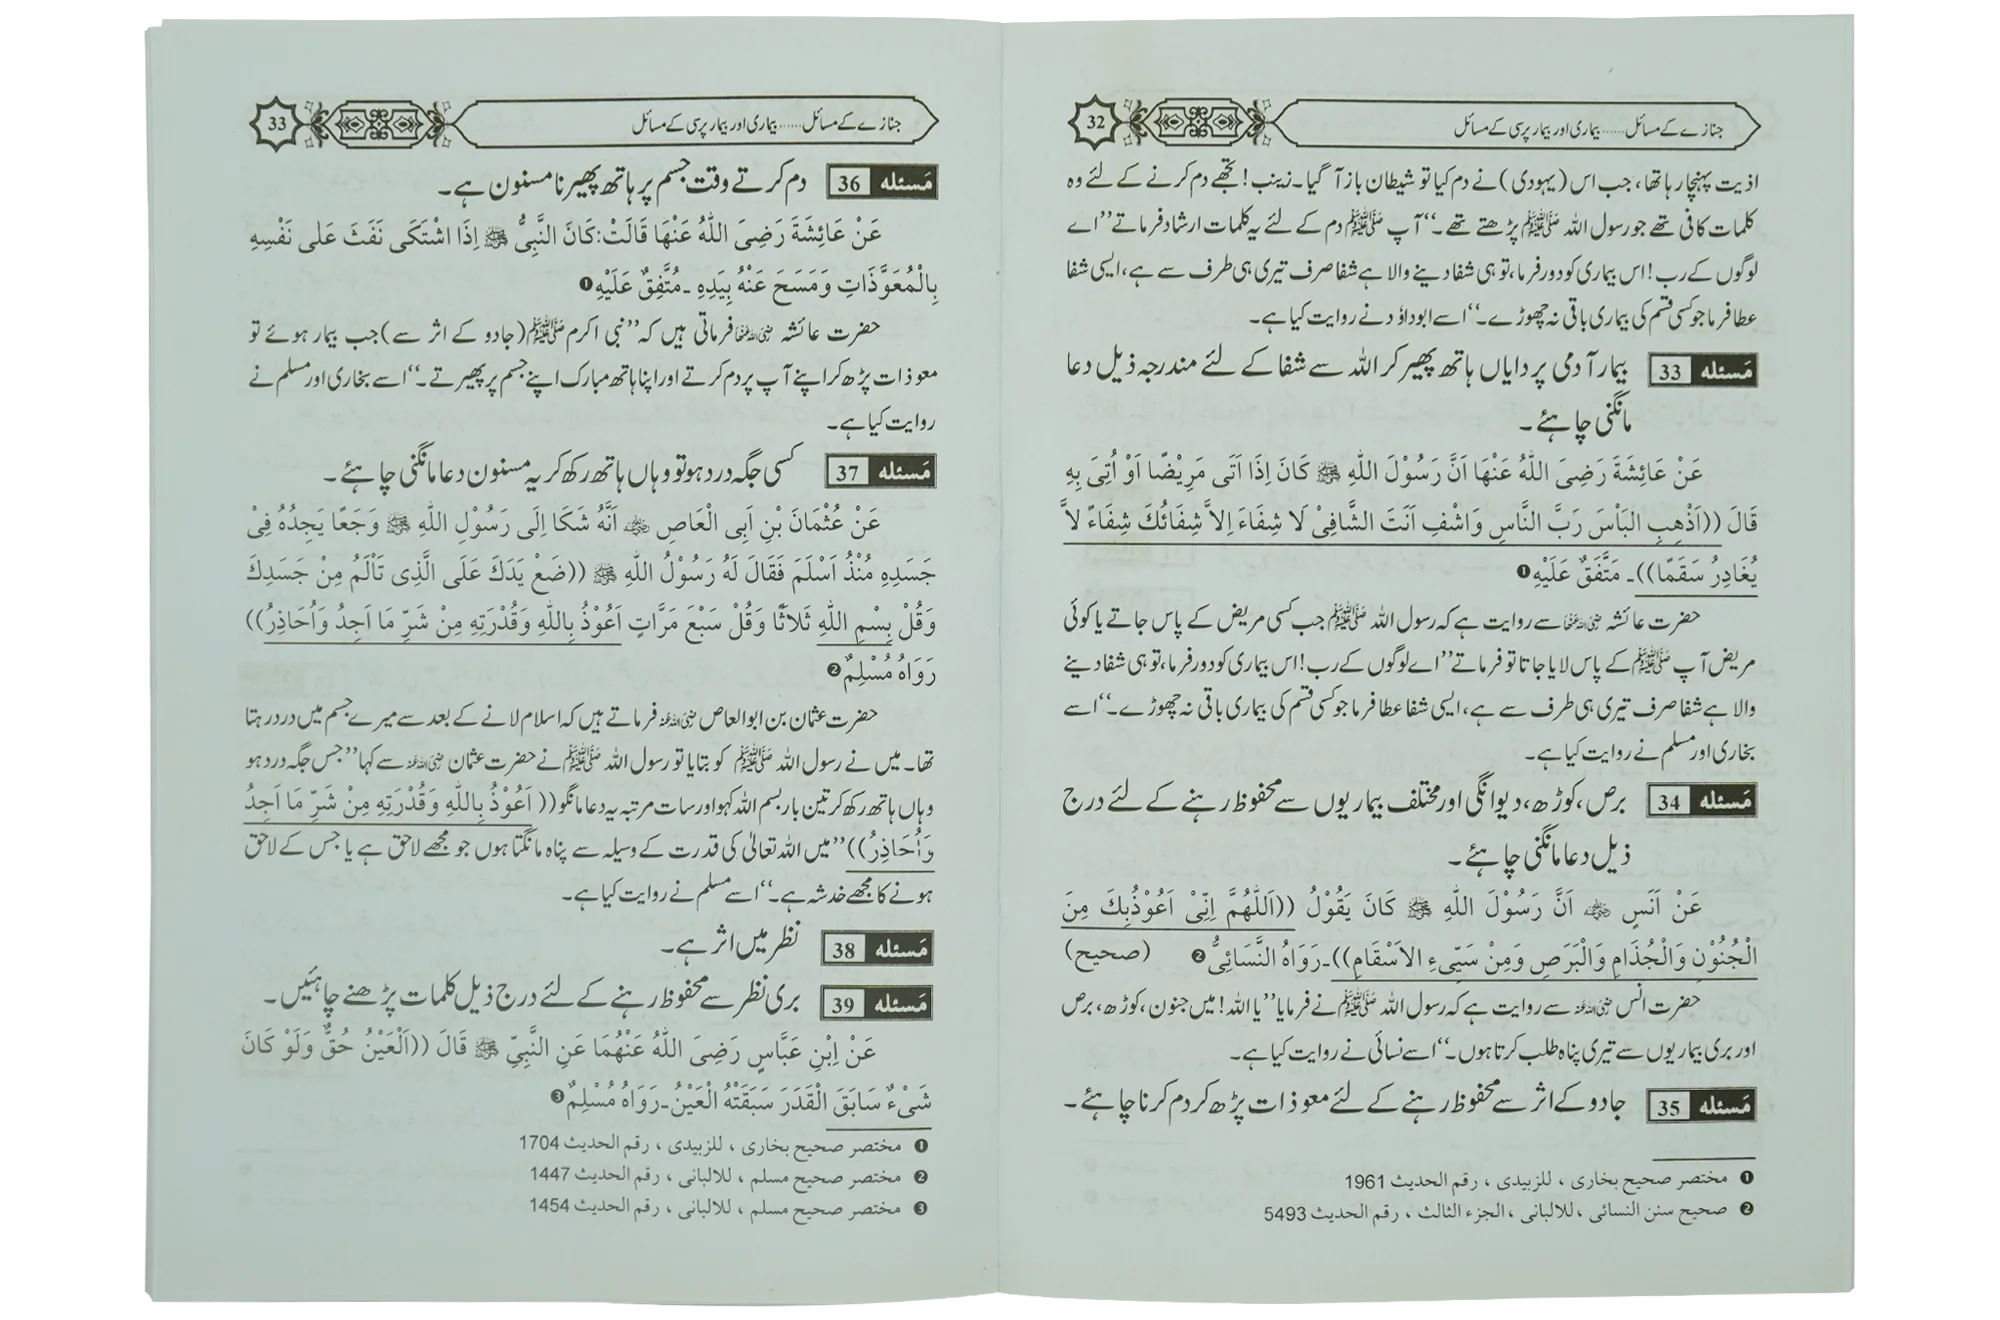 جنازے کے مسائل...... بیماری اور بیمار پرسی کے مسائل
32
اذیت پہنچا رہا تھا، جب اس (یہودی) نے دم کیا تو شیطان باز آ گیا۔ زینب! تجھے دم کرنے کے لئے وہ
کلمات کافی تھے جو رسول اللہ ﷺ پڑھتے تھے۔‘‘ آپ ﷺ دم کے لئے یہ کلمات ارشاد فرماتے ’’اے
لوگوں کے رب! اس بیماری کو دور فرما، تو ہی شفا دینے والا ہے شفا صرف تیری ہی طرف سے ہے، ایسی شفا
عطا فرما جو کسی قسم کی بیماری باقی نہ چھوڑے۔‘‘ اسے ابوداؤد نے روایت کیا ہے۔
مَسئله 33 بیمار آدمی پر دایاں ہاتھ پھیر کر اللہ سے شفا کے لئے مندرجہ ذیل دعا
مانگنی چاہئے۔
عَنْ عَائِشَةَ رَضِیَ اللّٰهُ عَنْهَا اَنَّ رَسُوْلَ اللّٰهِ ﷺ كَانَ اِذَا اَتَی مَرِیْضًا اَوْ اُتِیَ بِهِ
قَالَ ((اَذْهِبِ الْبَاْسَ رَبَّ النَّاسِ وَاشْفِ اَنْتَ الشَّافِیْ لَا شِفَاءَ اِلاَّ شِفَائُكَ شِفَاءً لاَّ
یُغَادِرُ سَقَمًا))۔ مُتَّفَقٌ عَلَیْهِ❶
حضرت عائشہ رضی اللہ عنہا سے روایت ہے کہ رسول اللہ ﷺ جب کسی مریض کے پاس جاتے یا کوئی
مریض آپ ﷺ کے پاس لایا جاتا تو فرماتے ’’اے لوگوں کے رب! اس بیماری کو دور فرما، تو ہی شفا دینے
والا ہے شفا صرف تیری ہی طرف سے ہے، ایسی شفا عطا فرما جو کسی قسم کی بیماری باقی نہ چھوڑے۔‘‘ اسے
بخاری اور مسلم نے روایت کیا ہے۔
مَسئله 34 برص، کوڑھ، دیوانگی اور مختلف بیماریوں سے محفوظ رہنے کے لئے درج
ذیل دعا مانگنی چاہئے۔
عَنْ اَنَسٍ رضی اللہ عنہ اَنَّ رَسُوْلَ اللّٰهِ ﷺ كَانَ یَقُوْلُ ((اَللّٰهُمَّ اِنِّیْ اَعُوْذُبِكَ مِنَ
الْجُنُوْنِ وَالْجُذَامِ وَالْبَرَصِ وَمِنْ سَیِّیءِ الاَسْقَامِ))۔ رَوَاهُ النَّسَائِیُّ❷ (صحیح)
حضرت انس رضی اللہ عنہ سے روایت ہے کہ رسول اللہ ﷺ نے فرمایا ’’یا اللہ! میں جنون، کوڑھ، برص
اور بری بیماریوں سے تیری پناہ طلب کرتا ہوں۔‘‘ اسے نسائی نے روایت کیا ہے۔
مَسئله 35 جادو کے اثر سے محفوظ رہنے کے لئے معوذات پڑھ کر دم کرنا چاہئے۔
❶ مختصر صحیح بخاری ، للزبیدی ، رقم الحدیث 1961
❷ صحیح سنن النسائی ، للالبانی ، الجزء الثالث ، رقم الحدیث 5493
جنازے کے مسائل...... بیماری اور بیمار پرسی کے مسائل
33
مَسئله 36 دم کرتے وقت جسم پر ہاتھ پھیرنا مسنون ہے۔
عَنْ عَائِشَةَ رَضِیَ اللّٰهُ عَنْهَا قَالَتْ: كَانَ النَّبِیُّ ﷺ اِذَا اشْتَكَی نَفَثَ عَلٰی نَفْسِهِ
بِالْمُعَوَّذَاتِ وَمَسَحَ عَنْهُ بِیَدِهِ ۔ مُتَّفِقٌ عَلَیْهِ❶
حضرت عائشہ رضی اللہ عنہا فرماتی ہیں کہ ’’نبی اکرم ﷺ (جادو کے اثر سے) جب بیمار ہوئے تو
معوذات پڑھ کر اپنے آپ پر دم کرتے اور اپنا ہاتھ مبارک اپنے جسم پر پھیرتے۔‘‘ اسے بخاری اور مسلم نے
روایت کیا ہے۔
مَسئله 37 کسی جگہ درد ہو تو وہاں ہاتھ رکھ کر یہ مسنون دعا مانگنی چاہئے۔
عَنْ عُثْمَانَ بْنِ اَبِی الْعَاصِ رضی اللہ عنہ اَنَّهُ شَكَا اِلَی رَسُوْلِ اللّٰهِ ﷺ وَجَعًا یَجِدُهُ فِیْ
جَسَدِهِ مُنْذُ اَسْلَمَ فَقَالَ لَهُ رَسُوْلُ اللّٰهِ ﷺ ((ضَعْ یَدَكَ عَلَی الَّذِی تَاْلَمُ مِنْ جَسَدِكَ
وَقُلْ بِسْمِ اللّٰهِ ثَلاَثًا وَقُلْ سَبْعَ مَرَّاتٍ اَعُوْذُ بِاللّٰهِ وَقُدْرَتِهِ مِنْ شَرِّ مَا اَجِدُ وَاُحَاذِرُ))
رَوَاهُ مُسْلِمٌ❷
حضرت عثمان بن ابوالعاص رضی اللہ عنہ فرماتے ہیں کہ اسلام لانے کے بعد سے میرے جسم میں درد رہتا
تھا۔ میں نے رسول اللہ ﷺ کو بتایا تو رسول اللہ ﷺ نے حضرت عثمان رضی اللہ عنہ سے کہا ’’جس جگہ درد ہو
وہاں ہاتھ رکھ کر تین بار بسم اللہ کہو اور سات مرتبہ یہ دعا مانگو ((اَعُوْذُ بِاللّٰهِ وَقُدْرَتِهِ مِنْ شَرِّ مَا اَجِدُ
وَاُحَاذِرُ)) ’’میں اللہ تعالیٰ کی قدرت کے وسیلہ سے پناہ مانگتا ہوں جو مجھے لاحق ہے یا جس کے لاحق
ہونے کا مجھے خدشہ ہے۔‘‘ اسے مسلم نے روایت کیا ہے۔
مَسئله 38 نظر میں اثر ہے۔
مَسئله 39 بری نظر سے محفوظ رہنے کے لئے درج ذیل کلمات پڑھنے چاہئیں۔
عَنْ اِبْنِ عَبَّاسٍ رَضِیَ اللّٰهُ عَنْهُمَا عَنِ النَّبِیِّ ﷺ قَالَ ((اَلْعَیْنُ حُقٌّ وَلَوْ كَانَ
شَیْءٌ سَابَقَ الْقَدَرَ سَبَقَتْهُ الْعَیْنُ۔ رَوَاهُ مُسْلِمٌ❸
❶ مختصر صحیح بخاری ، للزبیدی ، رقم الحدیث 1704
❷ مختصر صحیح مسلم ، للالبانی ، رقم الحدیث 1447
❸ مختصر صحیح مسلم ، للالبانی ، رقم الحدیث 1454